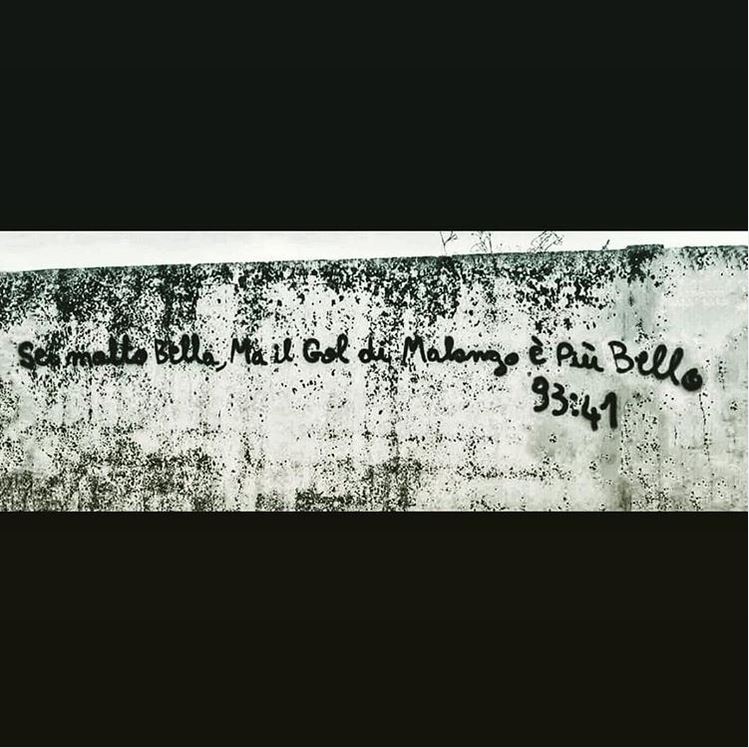 Sei molto Bella, Ma il Gol di Malonzo è Più Bello
93:41